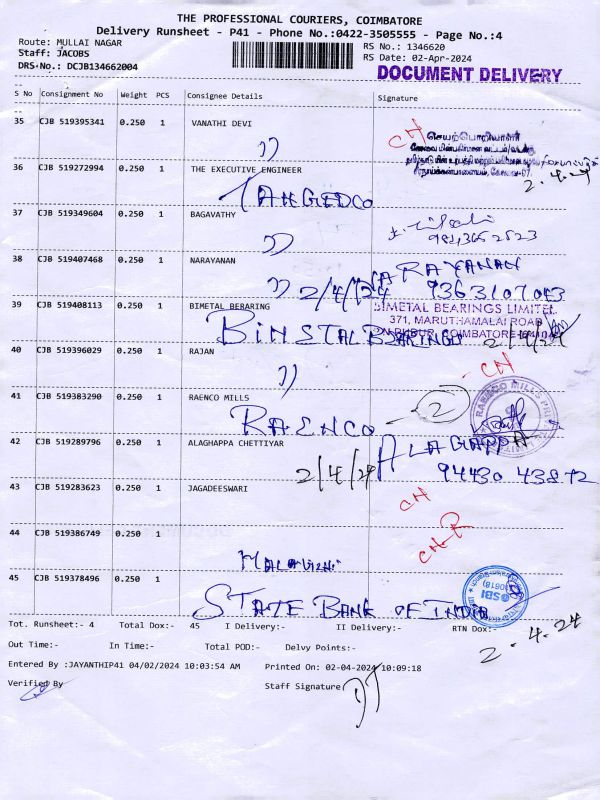 THE PROFESSIONAL COURIERS, COIMBATORE
Delivery Runsheet - P41 - Phone No.:0422-3505555 - Page No.:4
Route: MULLAI NAGAR
RS No.: 1346620
Staff: JACOBS
RS Date: 02-Apr-2024
DRS No.: DCJB134662004
DOCUMENT DELIVERY
S No Consignment No Weight PCS Consignee Details Signature
35 CJB 519395341 0.250 1 VANATHI DEVI CH
செயற்பொறியாளர்
36 CJB 519272994 0.250 1 THE EXECUTIVE ENGINEER
2.4.24
TANGEDCO
37 CJB 519349604 0.250 1 BAGAVATHY
38 CJB 519407468 0.250 1 NARAYANAN NARAYANAN
2/4/24 9363107043
39 CJB 519408113 0.250 1 BIMETAL BERARING BIMETAL BEARINGS LIMITED
371, MARUTHAMALAI ROAD
COIMBATORE
2/4/24
40 CJB 519396029 0.250 1 RAJAN CH
41 CJB 519383290 0.250 1 RAENCO MILLS 2
RAENCO
42 CJB 519289796 0.250 1 ALAGHAPPA CHETTIYAR ALAGAPPA
2/4/24 94430 43872
43 CJB 519283623 0.250 1 JAGADEESWARI CH
44 CJB 519386749 0.250 1 CH-R
45 CJB 519378496 0.250 1 SBI
STATE BANK OF INDIA
Tot. Runsheet:- 4 Total Dox:- 45 I Delivery:- II Delivery:- RTN Dox:-
2.4.24
Out Time:- In Time:- Total POD:- Delvy Points:-
Entered By :JAYANTHIP41 04/02/2024 10:03:54 AM Printed On: 02-04-2024 10:09:18
Verified By Staff Signature